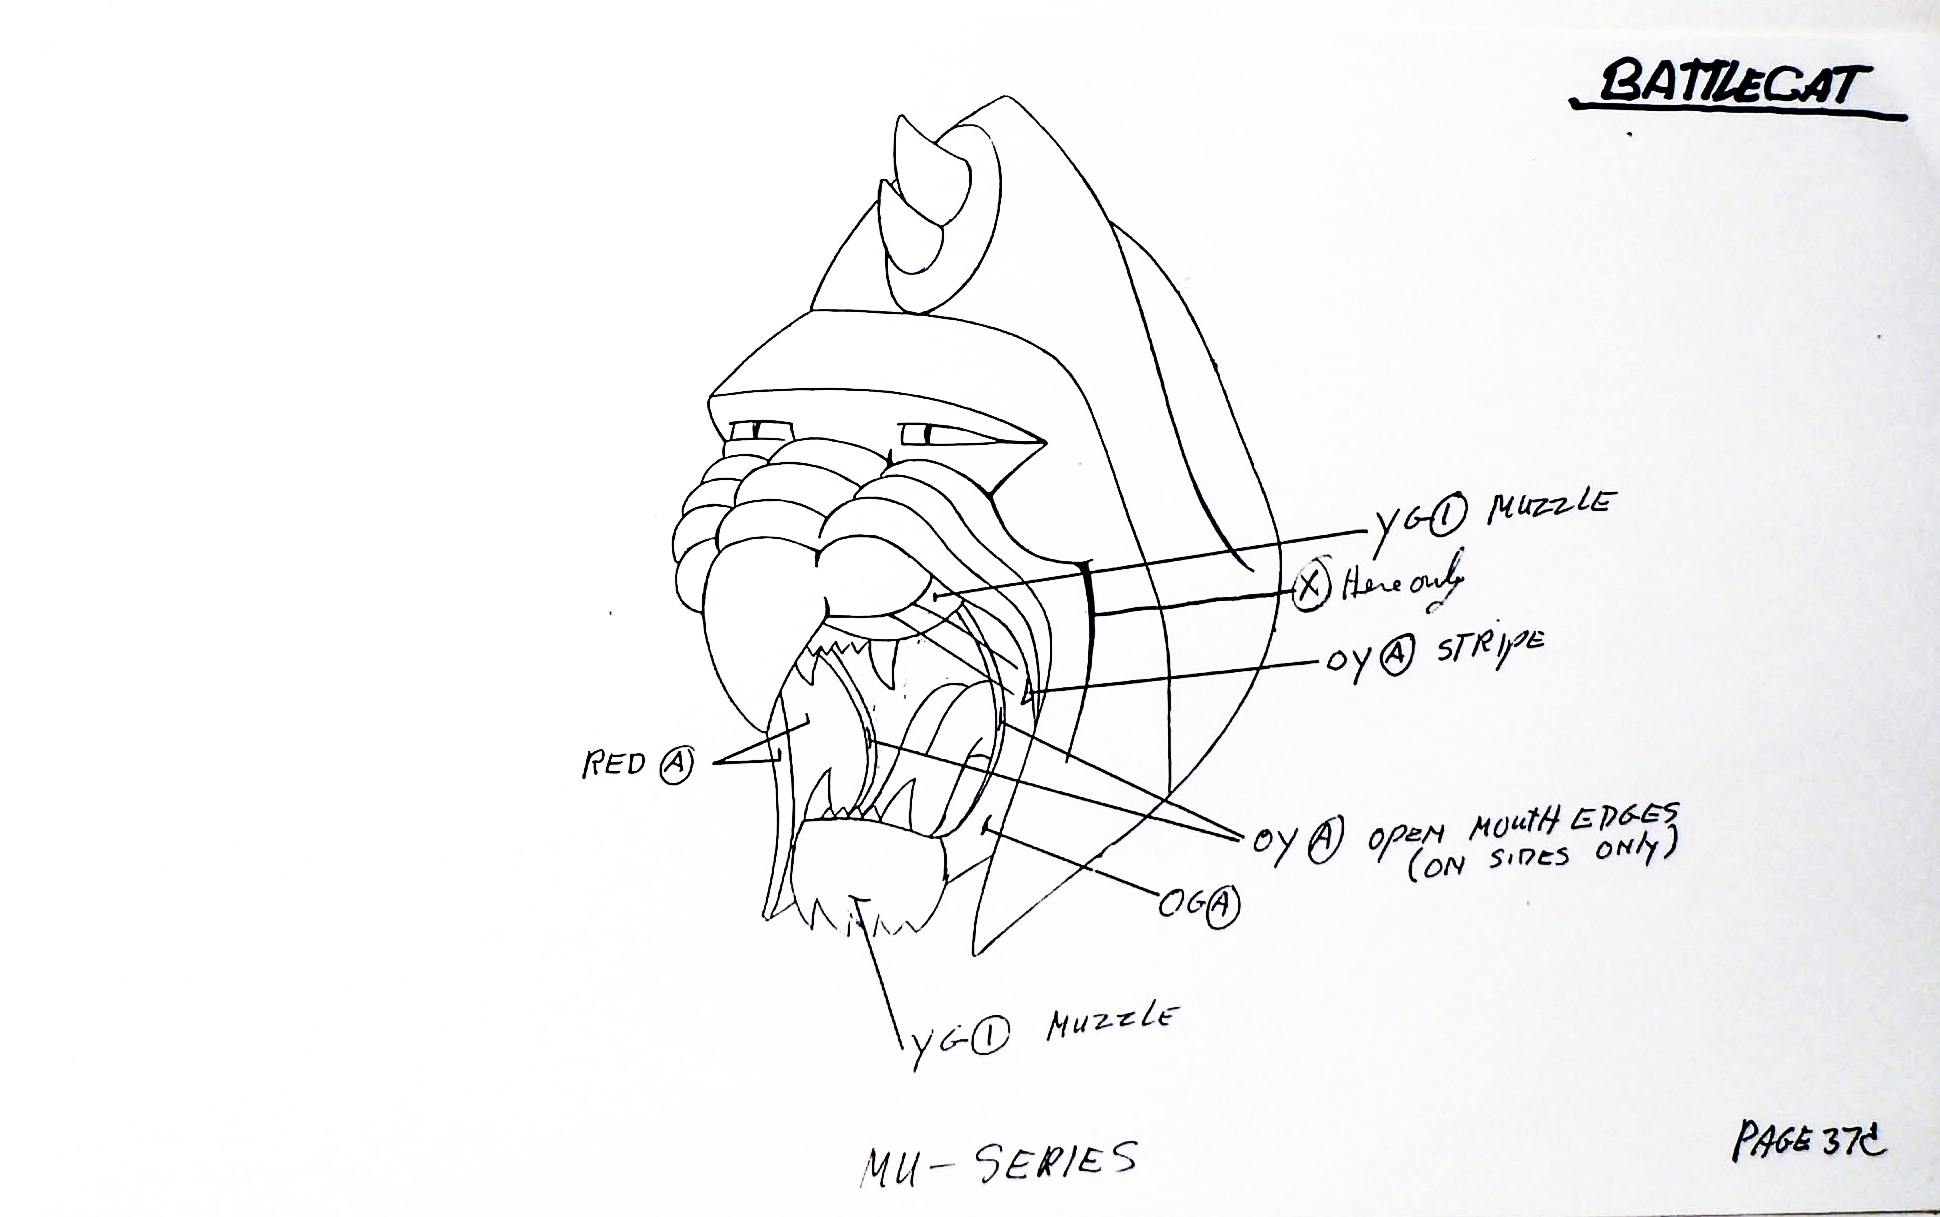 BATTLECAT
YG① MUZZLE
Ⓧ Here only
OYⒶ STRIPE
RED Ⓐ
OYⒶ OPEN MOUTH EDGES
(ON SIDES ONLY)
OGⒶ
YG① MUZZLE
MU-SERIES
PAGE 37C